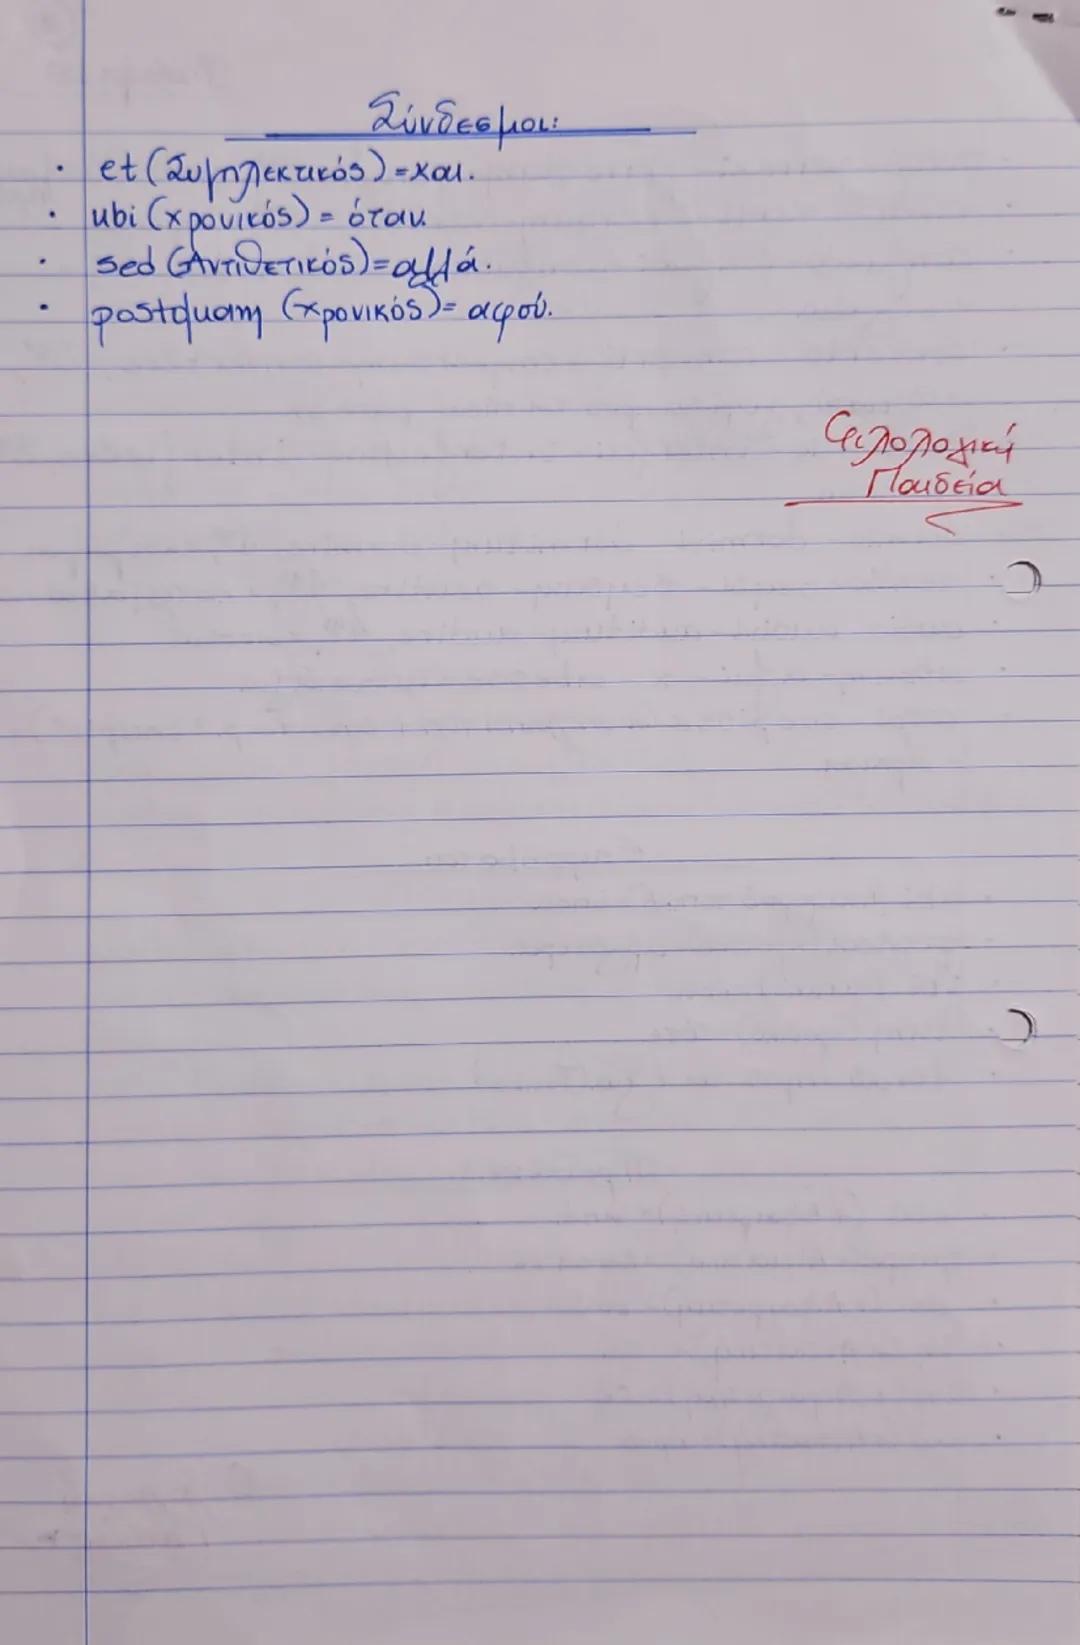 Σύνδεσμοι:
• et (Συμπλεκτικός) = και.
• ubi (χρονικός) = όταν.
• sed (Αντιθετικός) = αλλά.
• postquam (χρονικός) = αφού.
Φιλολογική
Παιδεία